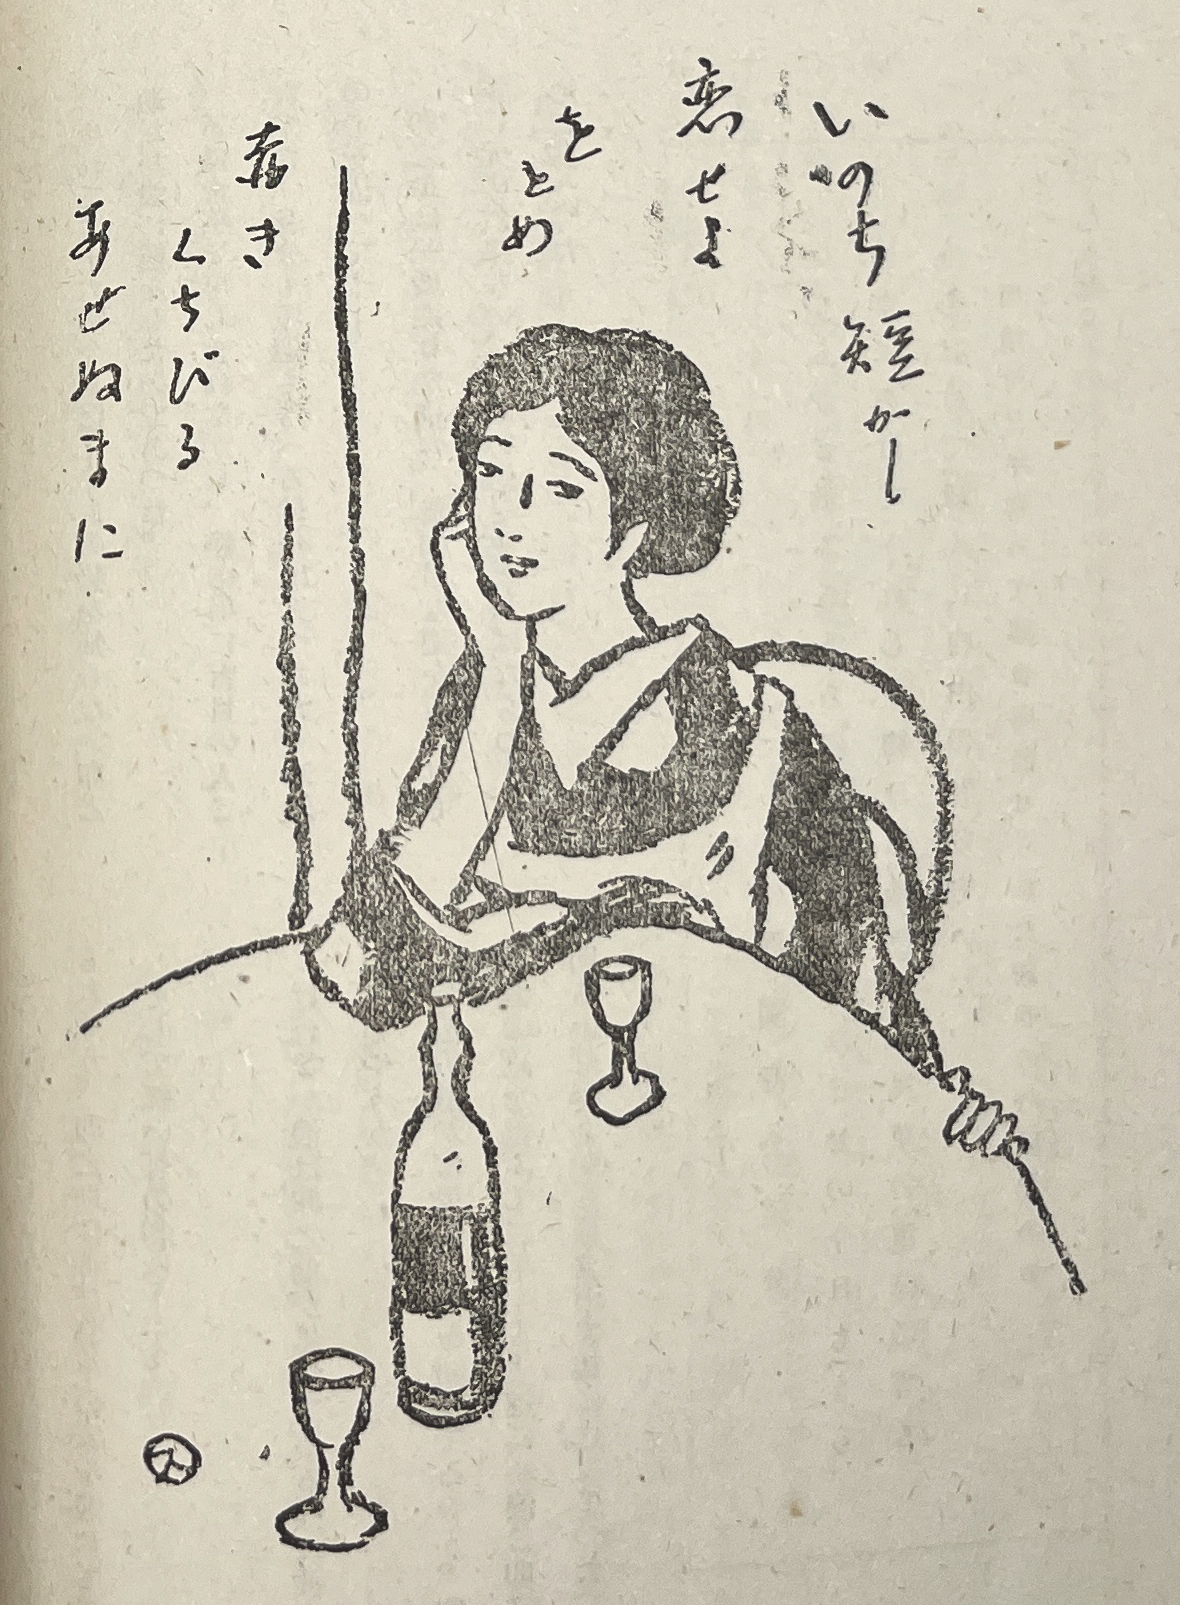 いのち短かし
恋せよ
をとめ
赤き
くちびる
あせぬまに